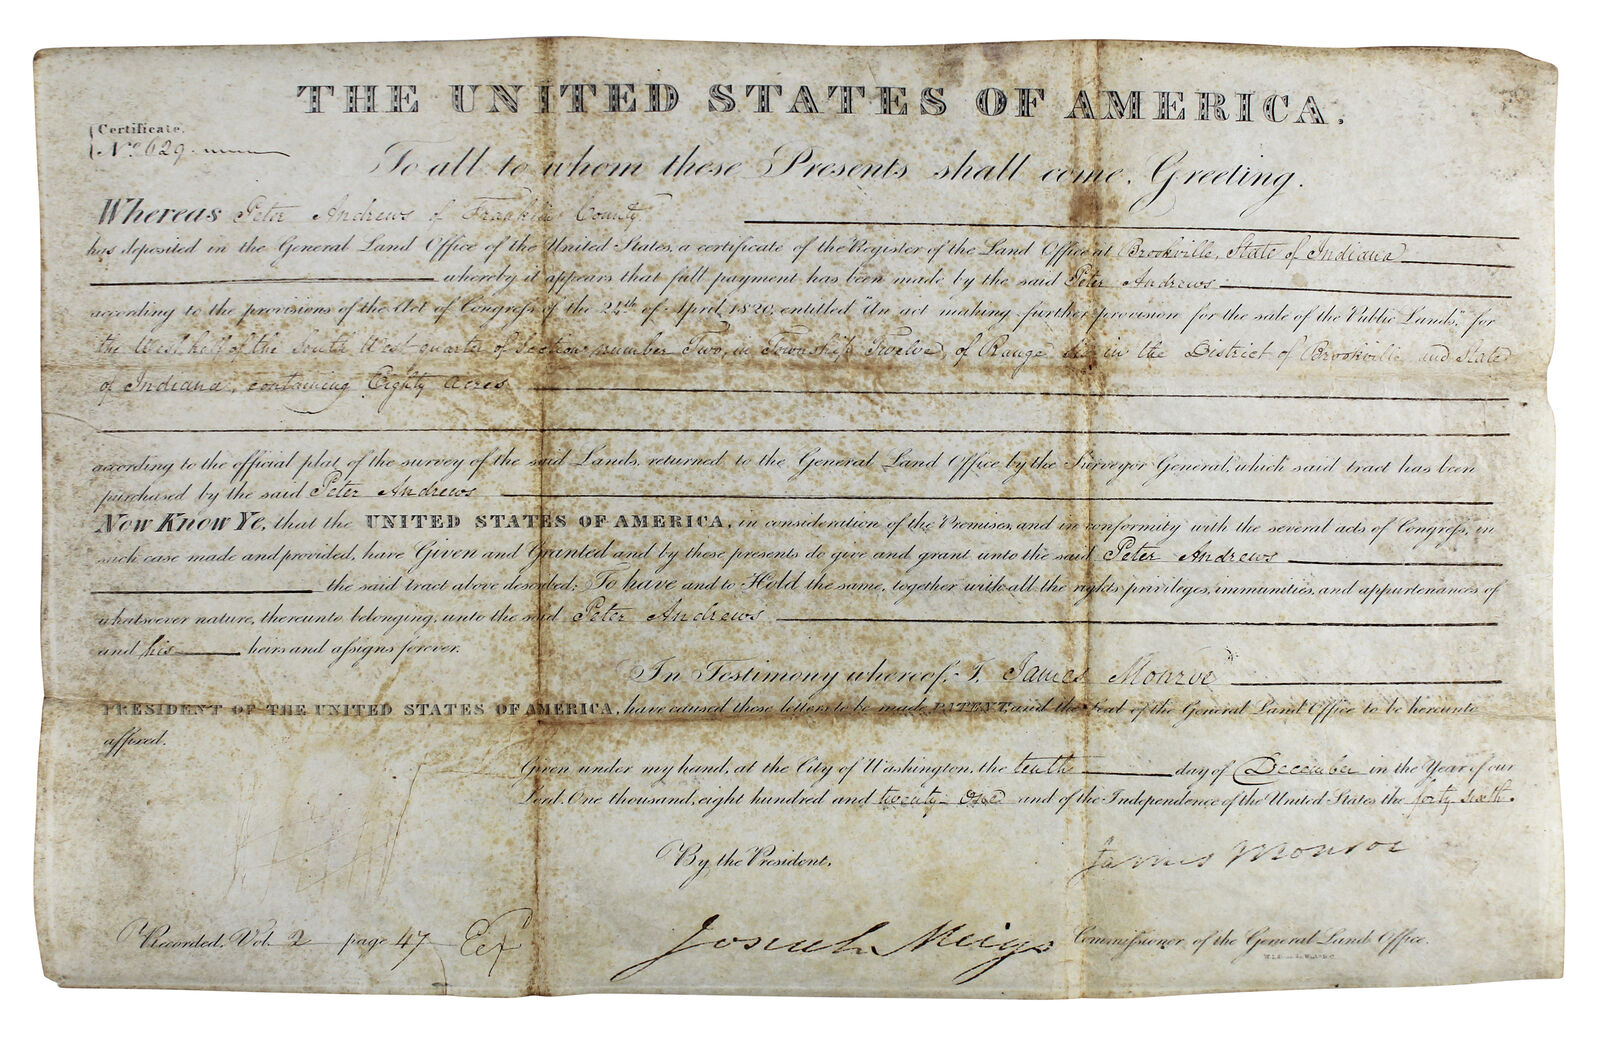 THE UNITED STATES OF AMERICA.
Certificate.
No. 629
To all to whom these Presents shall come, Greeting.
Whereas Peter Andrews of Franklin County
has deposited in the General Land Office of the United States, a certificate of the Register of the Land Office at Brookville, State of Indiana
whereby it appears that full payment has been made by the said Peter Andrews
according to the provisions of the Act of Congress of the 24th of April, 1820, entitled "An act making further provision for the sale of the Public Lands," for
the West half of the South West quarter of Section number Two, in Township Twelve, of Range in the District of Brookville and State
of Indiana, containing Eighty acres
according to the official plat of the survey of the said Lands, returned to the General Land Office by the Surveyor General, which said tract has been
purchased by the said Peter Andrews
Now Know Ye, that the UNITED STATES OF AMERICA, in consideration of the Premises, and in conformity with the several acts of Congress, in
such case made and provided, have Given and Granted and by these presents do give and grant unto the said Peter Andrews
the said tract above described: To have and to Hold the same, together with all the rights, privileges, immunities, and appurtenances of
whatsoever nature, thereunto belonging, unto the said Peter Andrews
and his heirs and assigns forever.
In Testimony whereof, I, James Monroe
PRESIDENT OF THE UNITED STATES OF AMERICA, have caused these letters to be made PATENT, and the Seal of the General Land Office to be hereunto
affixed.
Given under my hand, at the City of Washington, the tenth day of December in the Year of our
Lord, One thousand, eight hundred and twenty-one and of the Independence of the United States the forty sixth.
By the President,
James Monroe
Recorded, Vol. 2 page 47
Josiah Meigs Commissioner of the General Land Office.